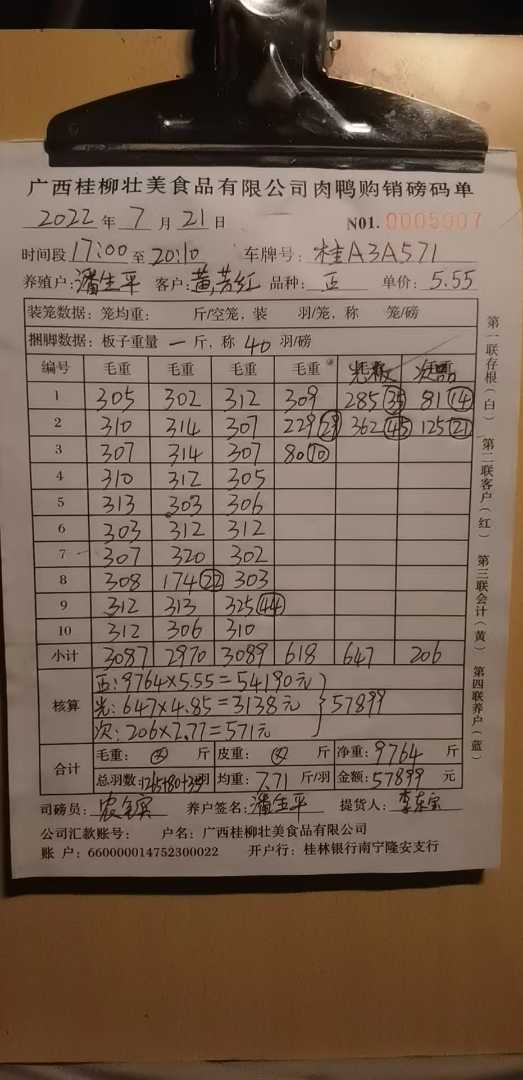 广西桂柳壮美食品有限公司肉鸭购销磅码单
2022 年 7 月 21 日 N01. 0005007
时间段 17:00 至 20:10 车牌号: 桂A3A571
养殖户: 潘生平 客户: 黄芳红 品种: 正 单价: 5.55
装笼数据: 笼均重: 斤/空笼, 装 羽/笼, 称 笼/磅
捆脚数据: 板子重量 一 斤, 称 40 羽/磅
编号 毛重 毛重 毛重 毛重 光板 次品
1 305 302 312 309 285(35) 81(14)
2 310 314 307 229(29) 362(45) 125(21)
3 307 314 307 80(10)
4 310 312 305
5 313 303 306
6 303 312 312
7 307 320 302
8 308 174(22) 303
9 312 313 325(44)
10 312 306 310
小计 3087 2970 3089 618 647 206
核算 正:9764×5.55=54190元
光:647×4.85=3138元 57899
次:206×2.77=571元
合计 毛重: 斤 皮重: 斤 净重: 9764 斤
总羽数: 1265+80+35羽 均重: 7.71 斤/羽 金额: 57899 元
司磅员: 养户签名: 潘生平 提货人: 李东宝
公司汇款账号: 户名: 广西桂柳壮美食品有限公司
账 户: 660000014752300022 开户行: 桂林银行南宁隆安支行
第一联存根(白) 第二联客户(红) 第三联会计(黄) 第四联养户(蓝)